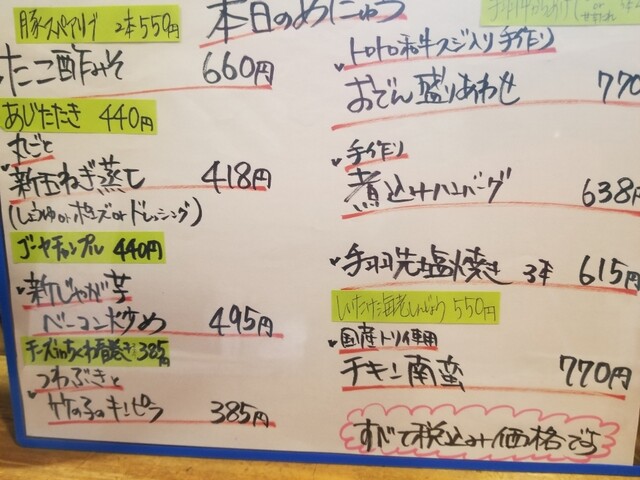 本日のめにゅう
豚スペアリブ 2本550円
たこ酢みそ 660円
あじたたき 440円
丸ごと
新玉ねぎ蒸し 418円
(しょうゆorポン酢orドレッシング)
ゴーヤチャンプル 440円
新じゃが芋
ベーコンドウめ 495円
チーズinちくわ春巻き 385円
つわぶきと
竹の子のキンピラ 385円
トロトロ和牛スジ入り手作り
おでん盛りあわせ 770
手作り
煮込みハンバーグ 638円
手羽先塩焼き 3本 615円
しいたけ海老しんじょう 550円
国産トリ使用
チキン南蛮 770円
すべて税込み価格です